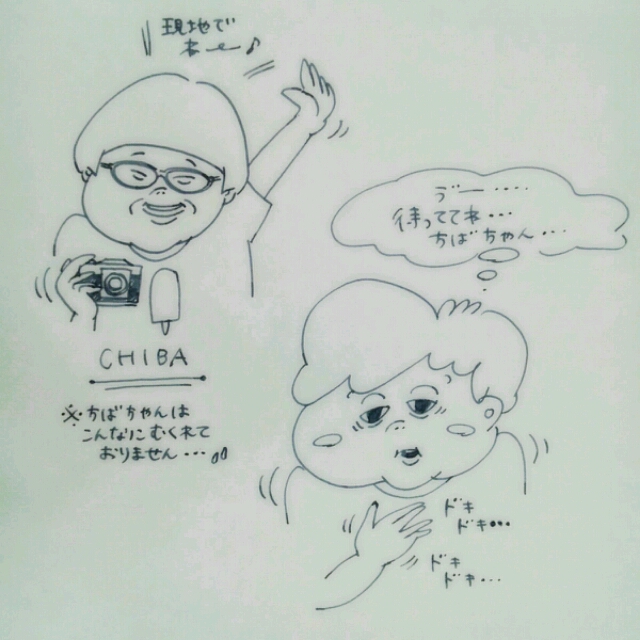 現地で
ねー♪
CHIBA
※ちばちゃんは
こんなにむくれて
おりません・・・
デー・・・・・
待っててね・・・
ちばちゃん・・・
ドキ
ドキ・・・
ドキ
ドキ・・・